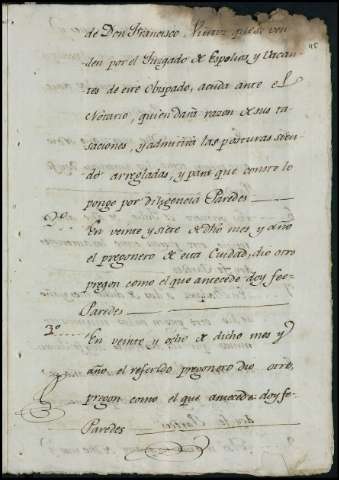 de Don Francisco que se ven
45
den por el Juzgado de Espolios, y Vacan
tes de este Obispado, acuda ante el
Notario, quien dará razon de sus ta
saciones, y admitirá las posturas sien
do arregladas, y para que conste lo
pongo por diligencia Paredes
2º En veinte y siete de dho mes, y año
el pregonero de esta Ciudad, dio otro
pregon como el que antecede doy fee
Paredes
3º En veinte y ocho de dicho mes y
año el referido pregonero dio otro
pregon como el que antecede doy fe
Paredes